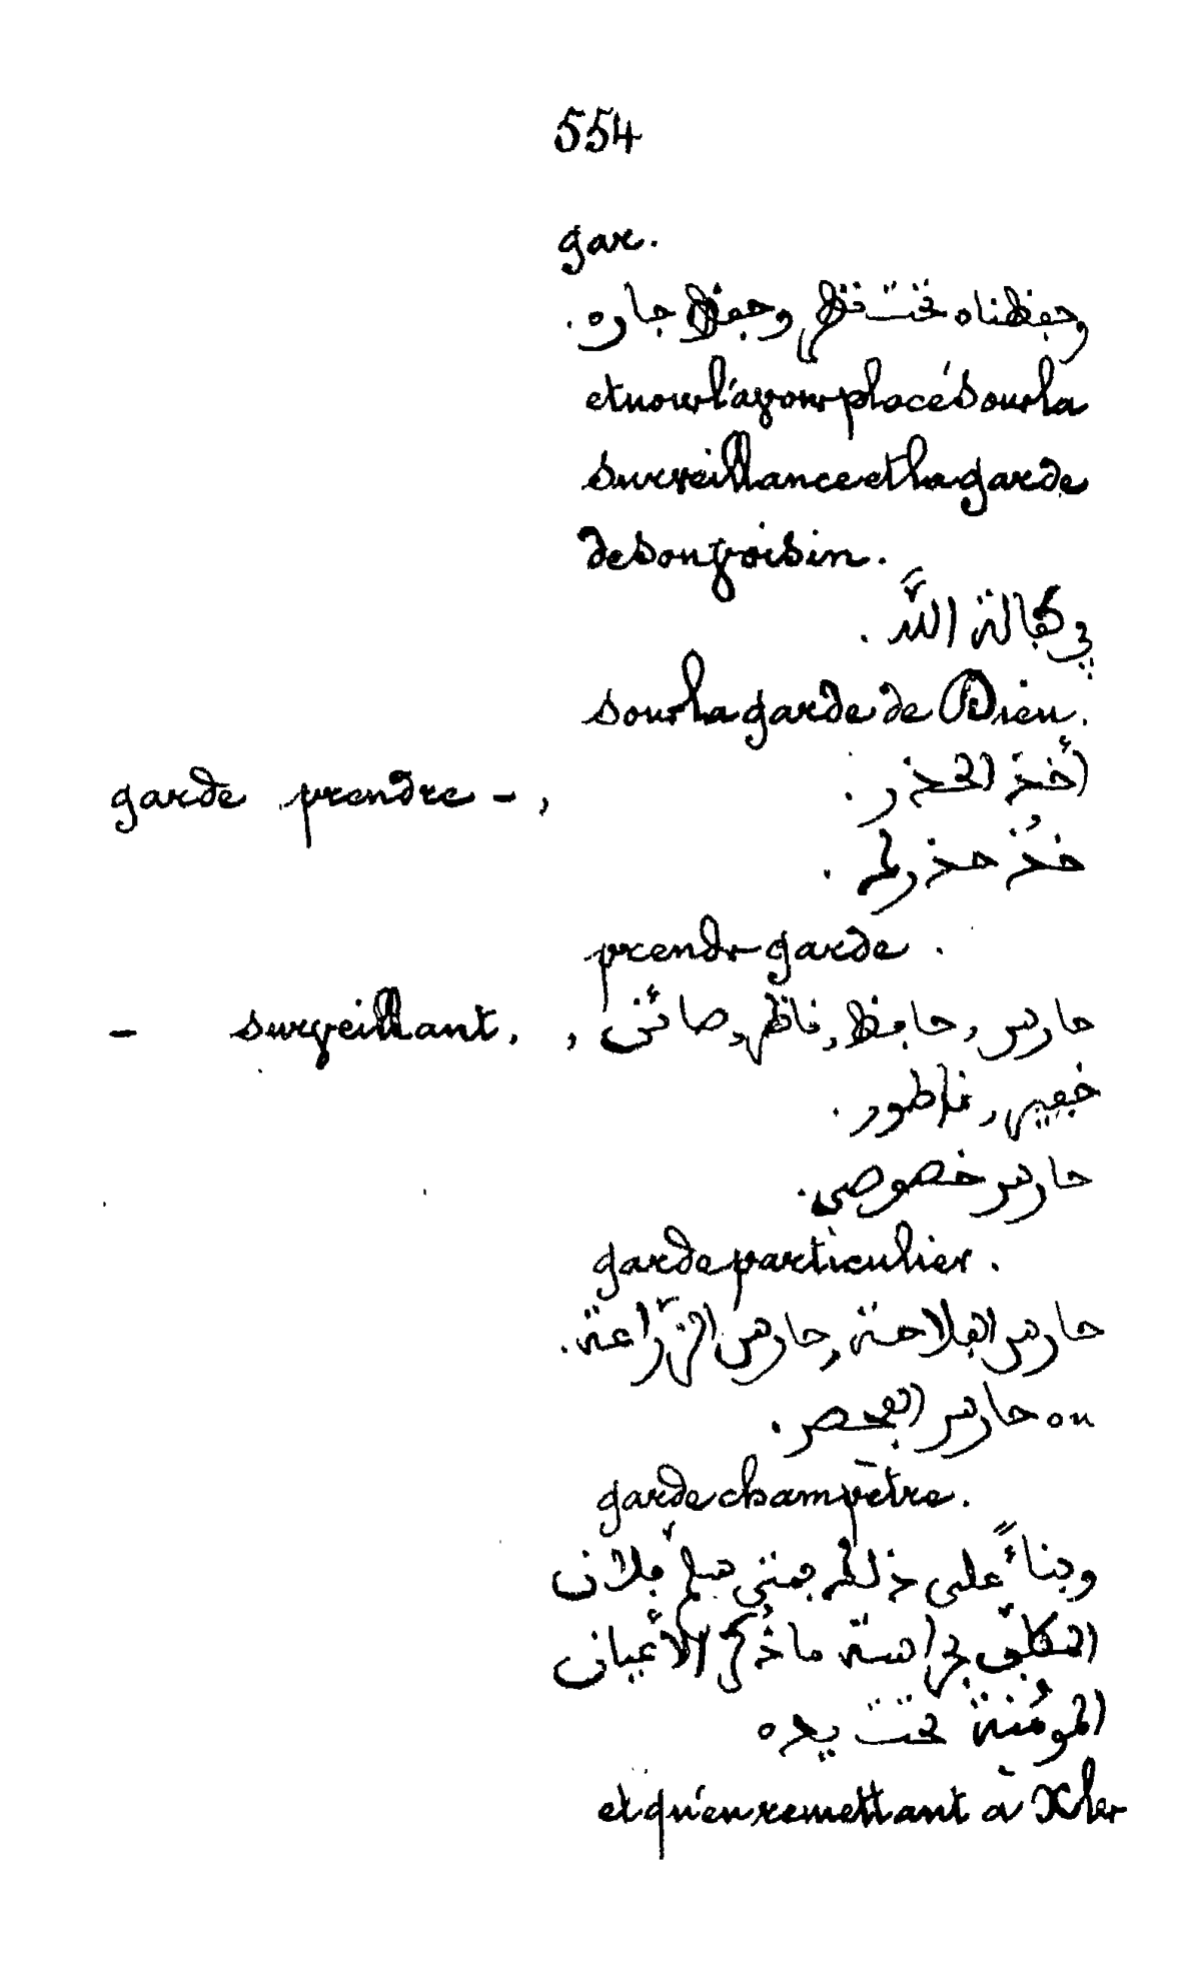 554
gar.
وحفظناه تحت نظر وحفظ جاره.
et nous l'avons placé sous la
surveillance et la garde
de son voisin.
في كفالة اللّه.
sous la garde de Dieu.
garde prendre - , أخذ الحذر.
خُذ حذرك.
prends garde.
- surveillant, , حارس, حافظ, ناظر, صائن
خفير, ناطور.
حارس خصوصي.
garde particulier.
حارس الفلاحة, حارس الزّراعة.
ou حارس الفحص.
garde champêtre.
وبناءً على ذلك فمتى سلّم فلان
المكلّف بحراسة ما ذُكر الأعيان
المؤمنة تحت يده
et qu'en remettant à X les